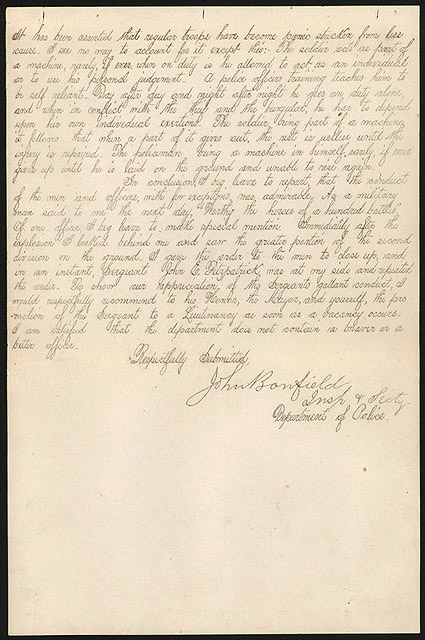 It has been asserted that regular troops have become panic stricken from less
cause. I see no way to account for it except this: The soldier acts as part of
a machine, rarely, if ever, when on duty is he allowed to act as an individual
or to use his personal judgement. A police officers training teaches him to
be self reliant. Day after day and night after night he goes on duty alone,
and when in conflict with the thief and the burglar, he has to depend
upon his own individual exertions. The soldier being part of a machine,
it follows that when a part of it gives out, the rest is useless until the
injury is repaired. The policeman being a machine in himself, rarely, if ever
gives up until he is laid on the ground and unable to rise again.
In conclusion, I beg leave to report, that the conduct
of the men and officers, with few exceptions, was admirable, As a military
man said to me the next day, "Worthy the heroes of a hundred battles".
Of one officer, I beg leave to make special mention. Immediately after the
explosion I looked behind me and saw the greater portion of the second
division on the ground. I gave the order to the men to close up, and
in an instant, Sergeant John E. Fitzpatrick, was at my side and repeated
the order. To show our appreciation, of the Sergeant's gallant conduct, I
would respectfully recommend to his Honor, the Mayor, and yourself, the pro
-motion of the Sergeant to a Lieutenancy as soon as a vacancy occurs.
I am satisfied that the department does not contain a braver or a
better officer.
Respectfully Submitted,
John Bonfield,
Insp & Secty
Department of Police.